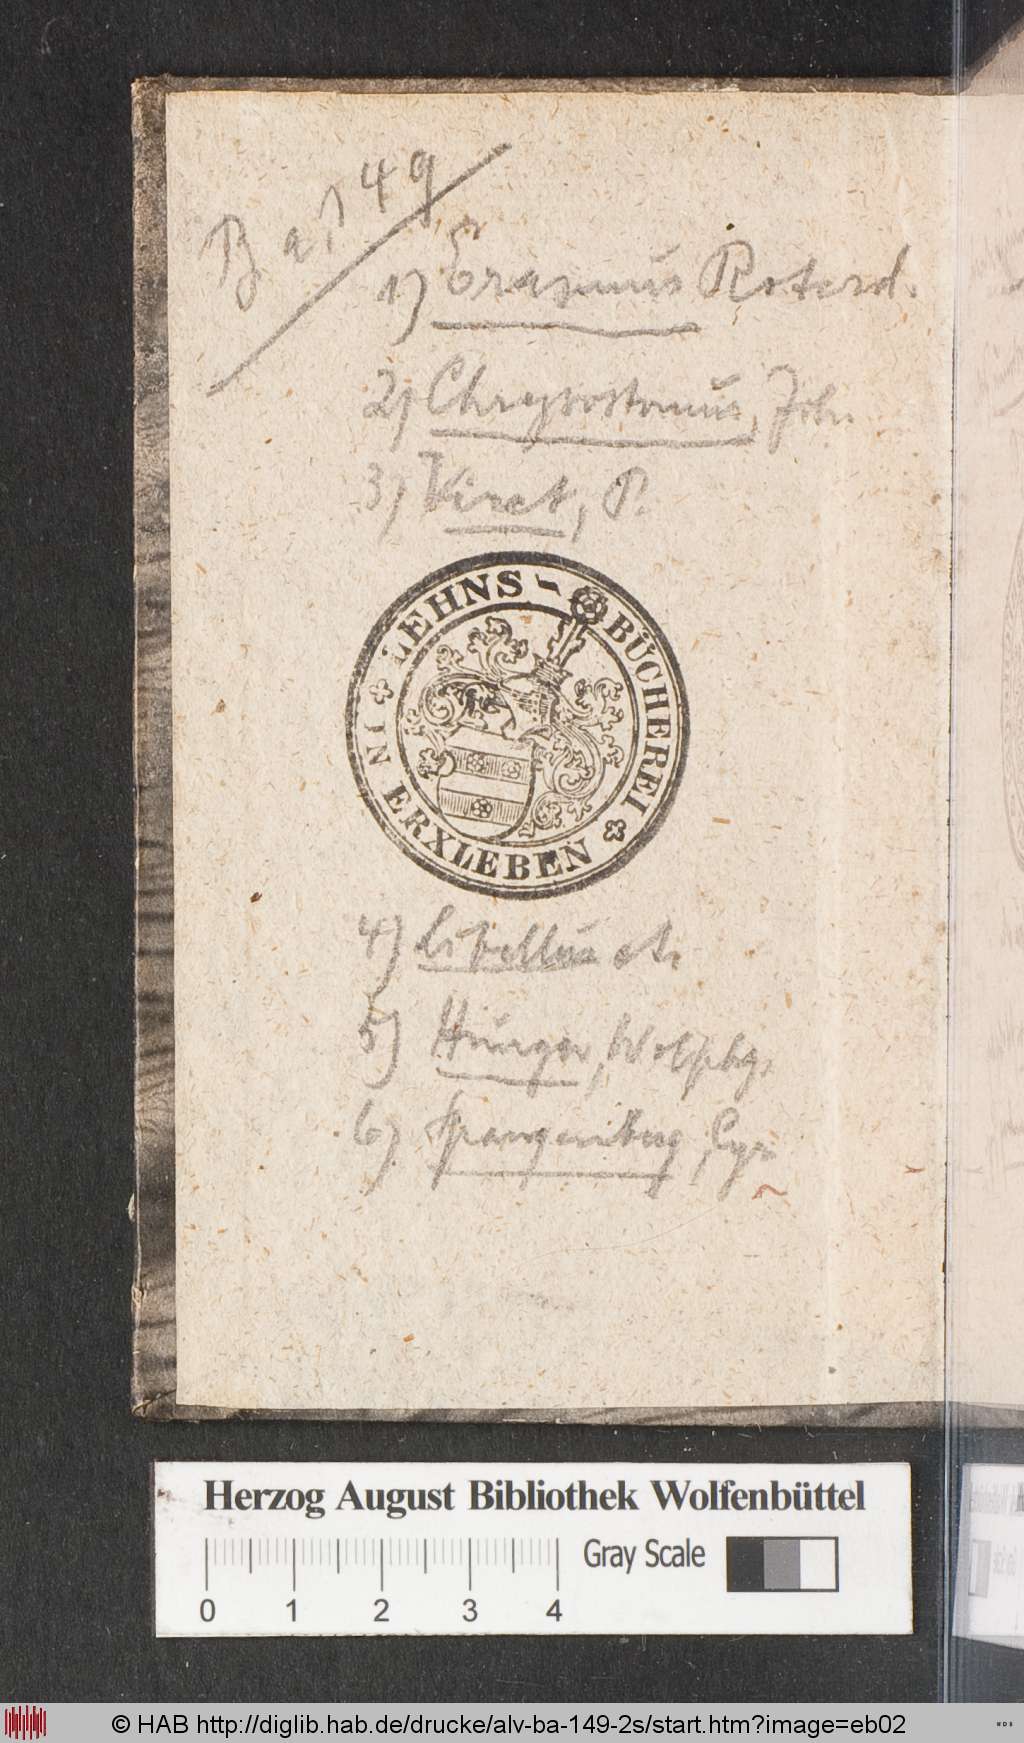 Ba, 149
1) Erasmus Roterd.
2) Chrysostomus, Joh.
3) Viret, P.
LEHNS-BÜCHEREI
IN ERXLEBEN
4) Libellus et.
5) Hunger, Wolphg.
6) Spangenberg, Cyr.
Herzog August Bibliothek Wolfenbüttel
Gray Scale
0 1 2 3 4
© HAB http://diglib.hab.de/drucke/alv-ba-149-2s/start.htm?image=eb02